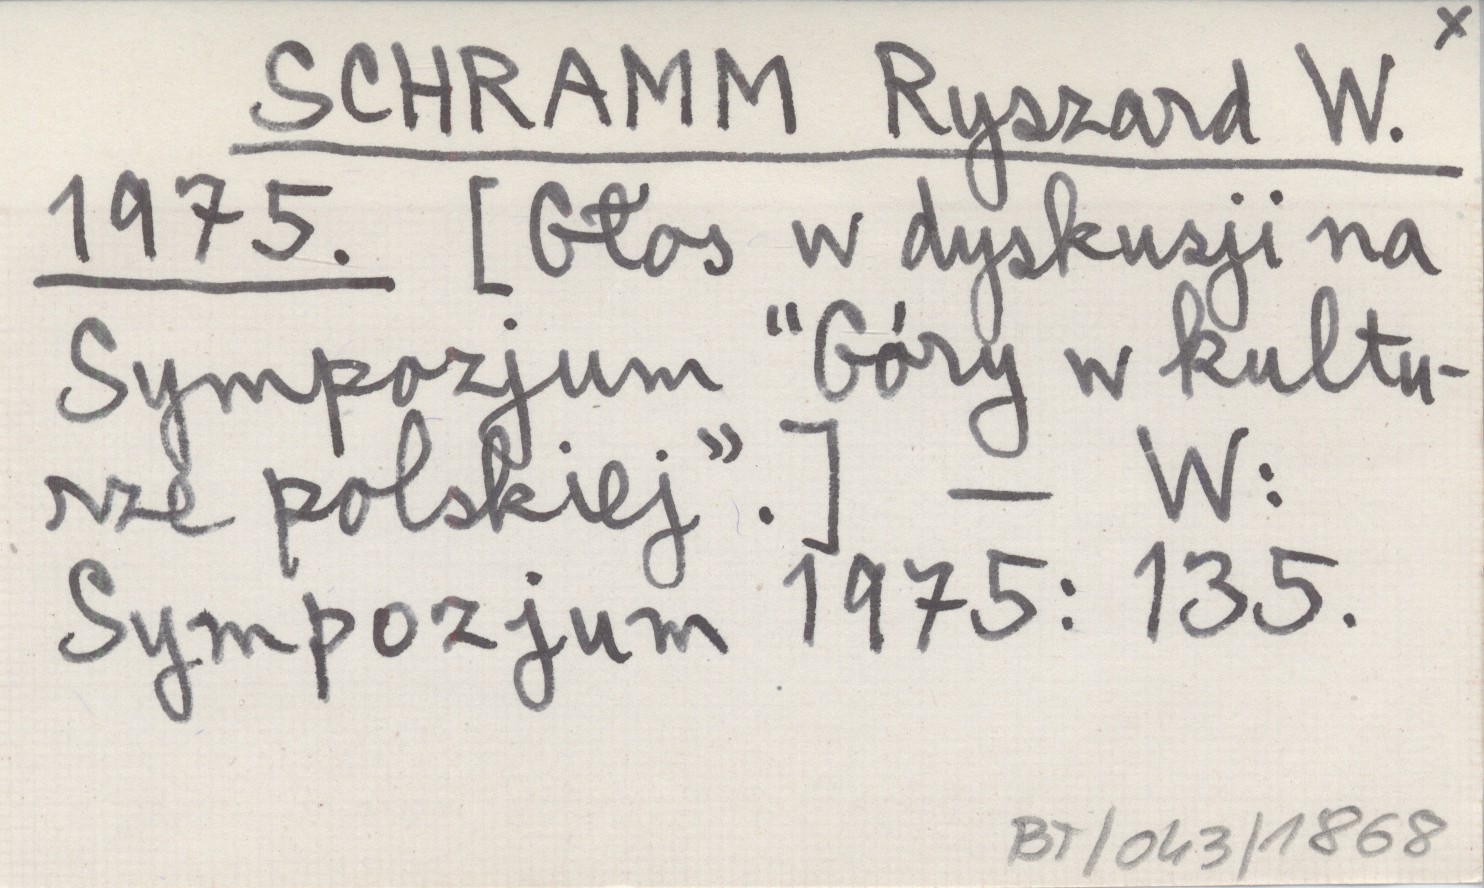 x
SCHRAMM Ryszard W.
1975. [Głos w dyskusji na
Sympozjum "Góry w kultu-
rze polskiej".] — W:
Sympozjum 1975: 135.
BT/043/1868